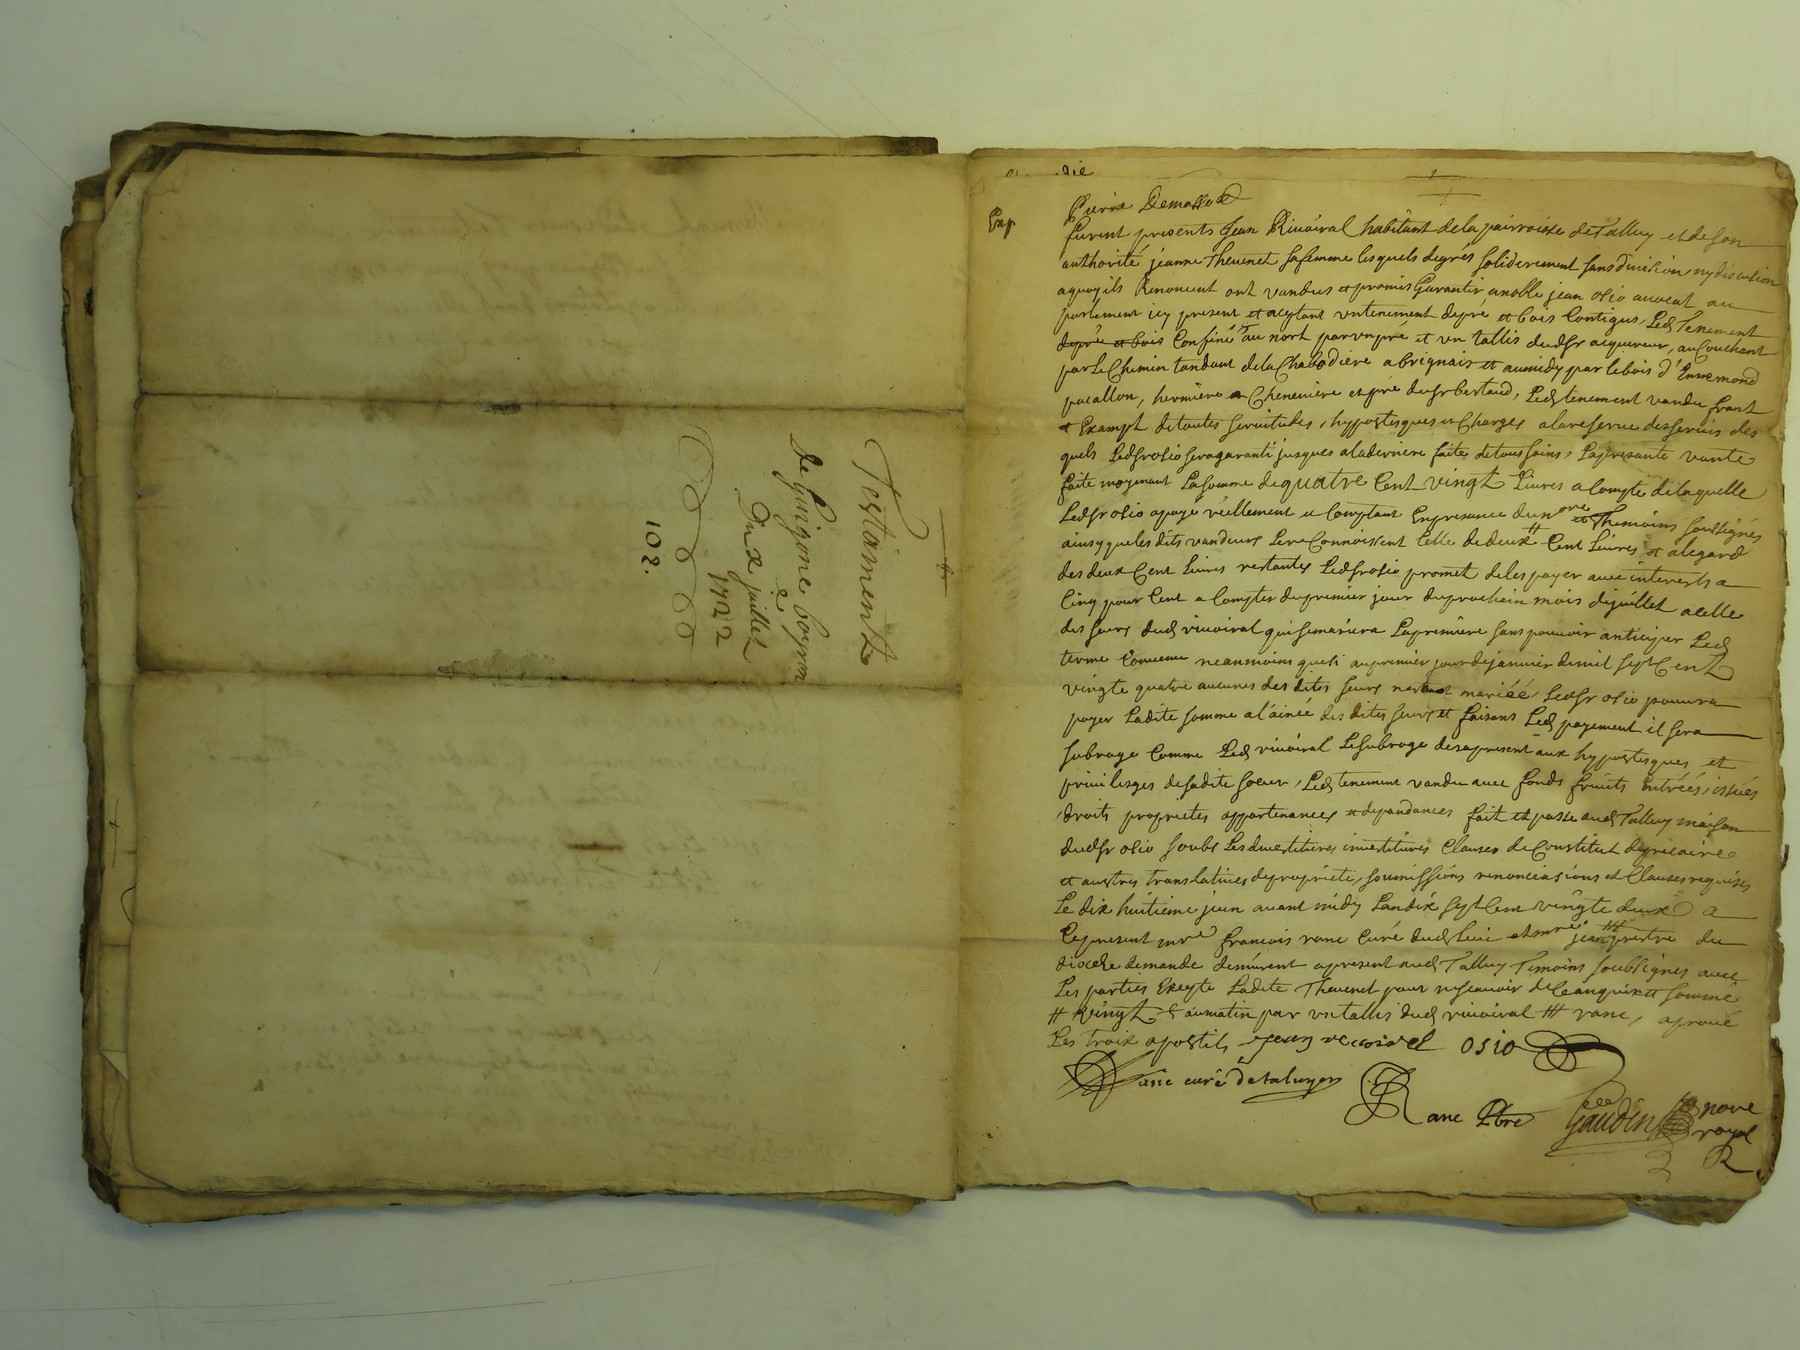 Testament
de Guigone boyron
e
Du x juillet
1722
102.
Exp
Pierre Demassod
furent presents Jean Rivoiral habitant de la pairroisse de Talluy et de son
authorité jeanne Thevenet sa femme lesquels de grés soliderement sans division, ny discution
a quoy ils Renoncent ont vandus et promis Garantir a noble jean osio avocat au
parlement icy present et aceptant un tenement de pré et bois Contigus, Led Tenement
de pré et bois Confiné au nort par un pré et un tallis dud sr aquereur, au Couchant
par Le Chemin tandant de la Chabodiere a brignais et au midy par le bois d'Ennemond
pocallon, hermiere Cheneviere et pré du sr bertaud, Led tenement vandu franc
et Exampt de toutes servitudes, hypostesques et Charges a la reserve des servis des
quels Led sr osio sera garanti jusques a la derniere faite de toussains, La presante vante
faite moyenant La somme de quatre Cent vingt Livres a Compte de la quelle
Led sr osio a payé réellement et Comptant En presance du nore et Themoins sousignés
ainsy que les dits vandeurs Le reConnoissent Celle de deux # Cent Livres et a legard
des deux Cent Livres restantes Led sr osio promet de les payer avec interests a
Cinq pour Cent a Compter du premier jour du prochain mois de juillet a celle
des seurs dud rivoiral qui se mariera La premiere sans pouvoir anticiper Led
terme Convenu neanmoins que si au premier jour de janvier de mil sept Cent
vingte quatre aucunes des dites seurs n'estoit mariéé, Led sr osio pouvra
payer Ladite somme a l'ainéé des dites seurs et faisant Led payement il sera
subrogé Comme Led rivoiral Le subroge des a present aux hypostesques et
privileges de sadite soeur, Led tenement vandu avec fonds fruits Entréés, issués
droits proprietes appartenances et depandances fait et passé aud Talluy maison
dud sr osio soubs Les devestitures investitures Clauses de Constitut de precaire
et austres translatives de propriete, soumissions renonceasions et Clauses requises
Le dix huitieme juin avant midy L'an dix sept Cent vingte deux a
Ce present mre francois rane Curé dud lieu et mre jean ### prestre du
diocese demande demeurent a present aud Talluy Temoins soubsignes avec
Les parties Excepte Ladite Thevenet pour ne scavoir de Ce anquise et sommé
# vingt & au matin par un tallis dud rivoiral ### rane, aprouè
Les troix apostils Jean revoirel osio
Rane curé de taluyer
J Rane Ptre Gaudin nore
royal
R